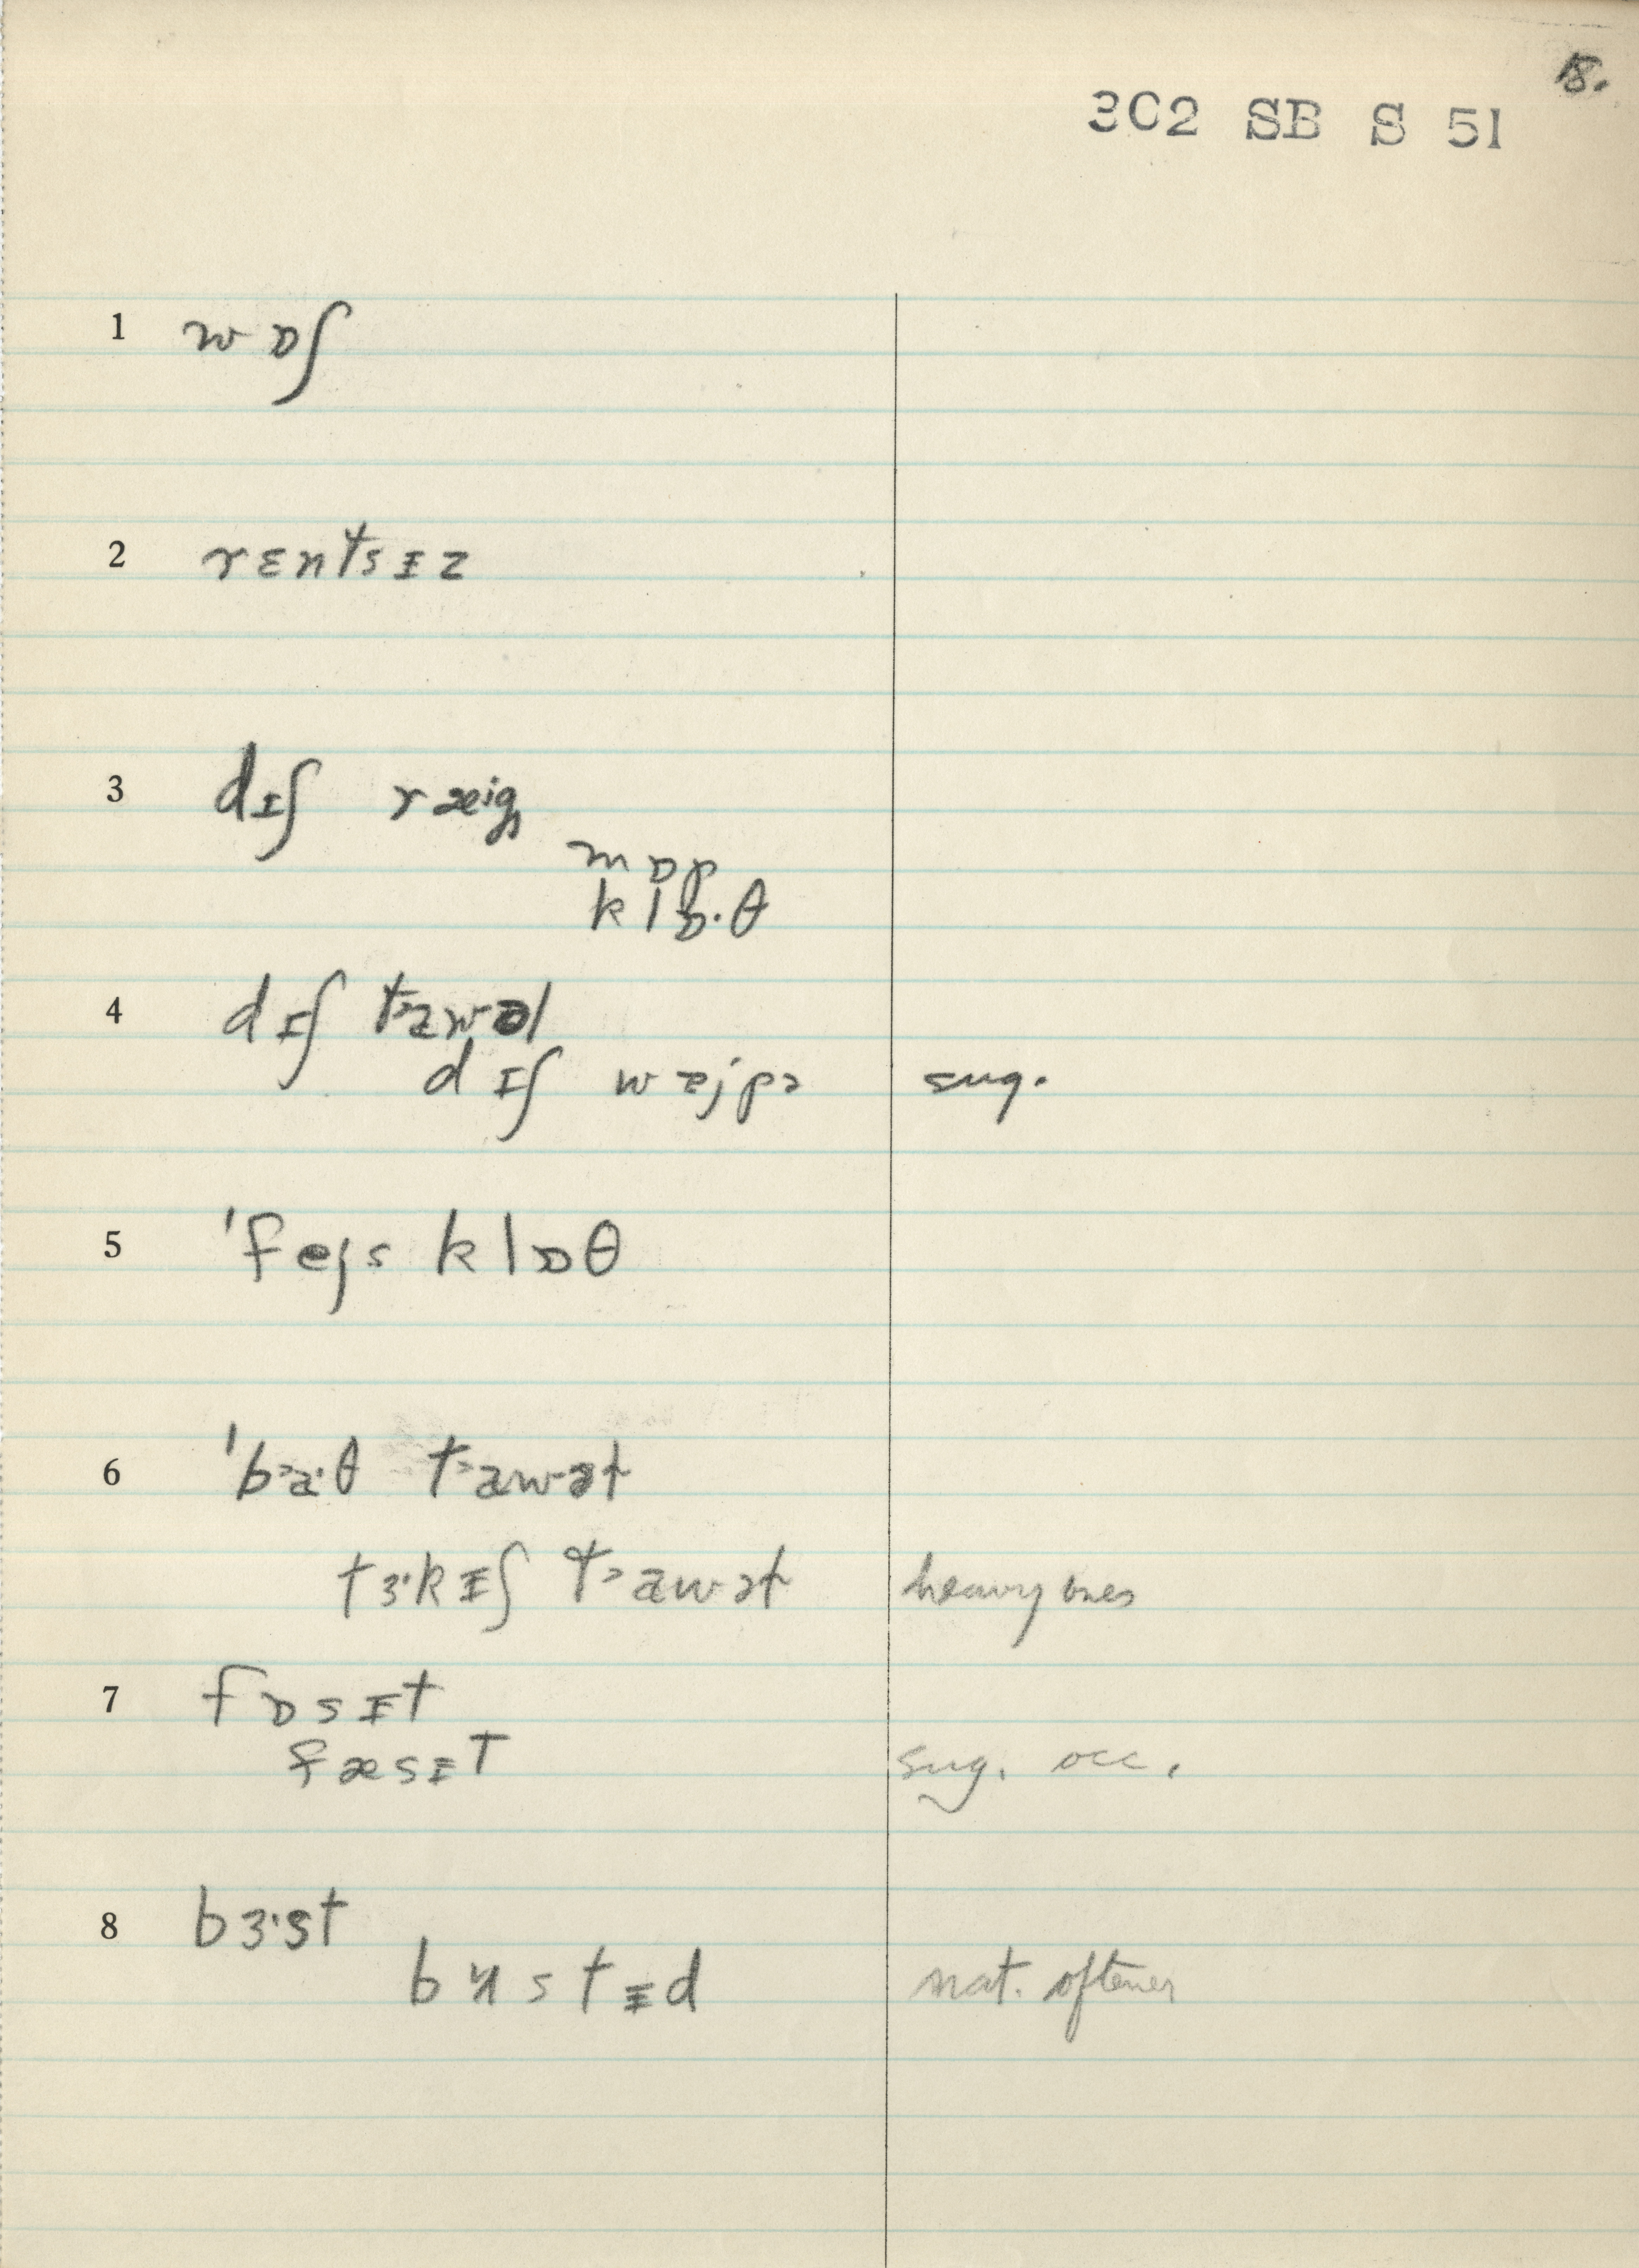 18.
302 SB S 51
1 wɒʃ
2 rɛntsɪz
3 dɪʃ ræig
mɒp
klɒ·θ
4 dɪʃ tawəl
dɪʃ wajpə sug.
5 'fejs klɒθ
6 'ba·θ tawət
tɜ·kɪʃ tawət heavy ones
7 fɒsɪt
fæsɪt sug. occ.
8 bɜ·st
bʌstɪd nat. oftener